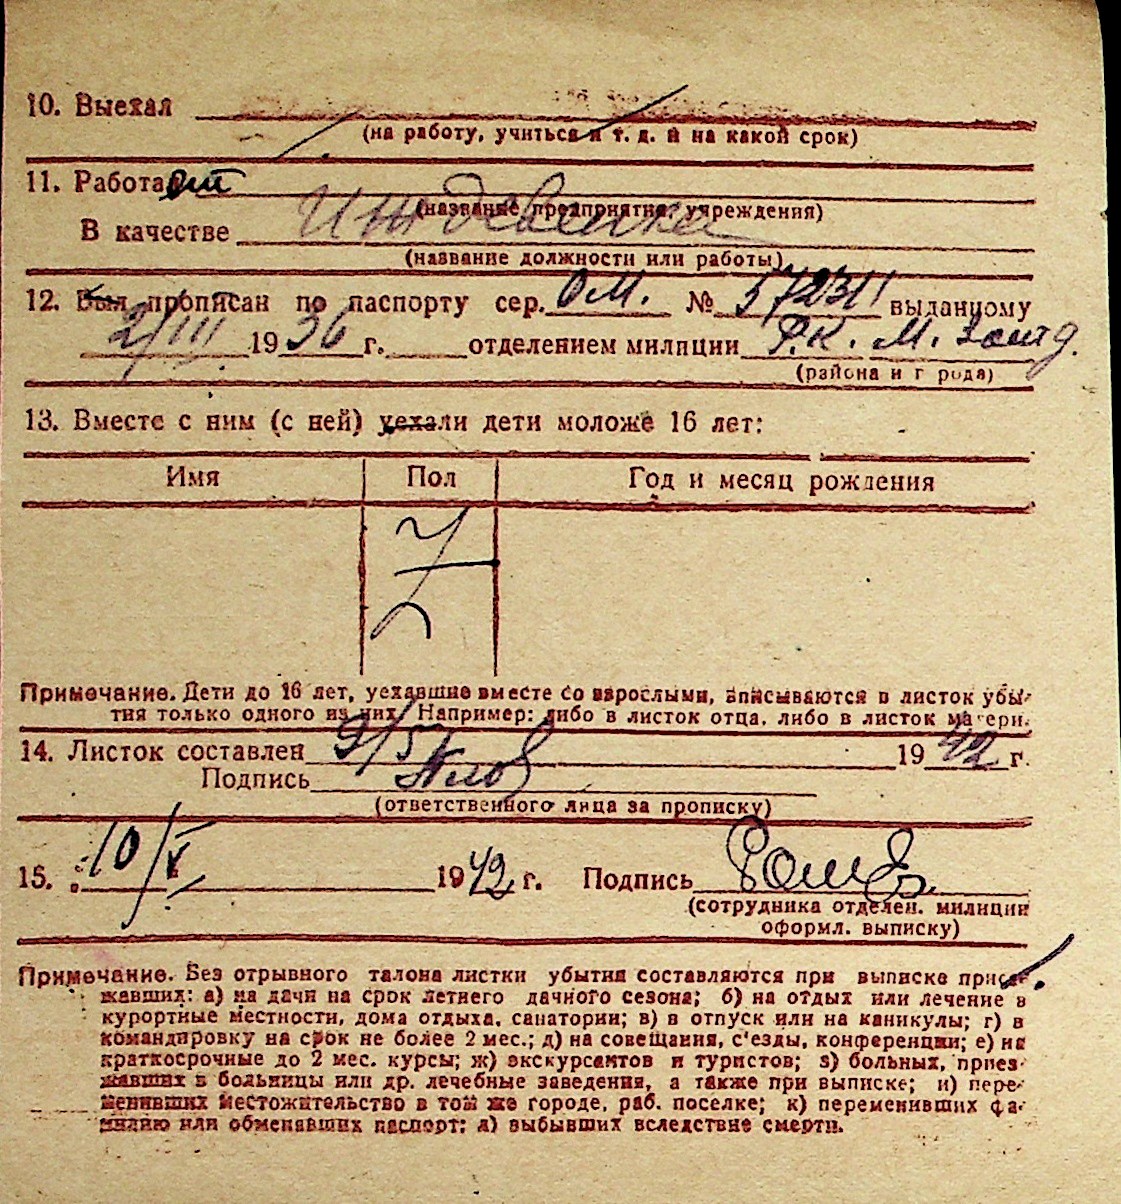 10. Выехал
(на работу, учиться и т. д. и на какой срок)
11. Работает
(название предприятия, учреждения)
В качестве Иждевенка
(название должности или работы)
12. Был прописан по паспорту сер. ОМ. № 572311 выданному
2/III 1936 г. отделением милиции Р.К.М.
(района и города)
13. Вместе с ним (с ней) уехали дети моложе 16 лет:
Имя Пол Год и месяц рождения
Примечание. Дети до 16 лет, уехавшие вместе со взрослыми, вписываются в листок убы-
тия только одного из них. Например: либо в листок отца, либо в листок матери.
14. Листок составлен 9/5 1942 г.
Подпись
(ответственного лица за прописку)
15. 10/V 1942 г. Подпись
(сотрудника отделен. милиции
оформл. выписку)
Примечание. Без отрывного талона листки убытия составляются при выписке приез-
жавших: а) на дачи на срок летнего дачного сезона; б) на отдых или лечение в
курортные местности, дома отдыха, санатории; в) в отпуск или на каникулы; г) в
командировку на срок не более 2 мес.; д) на совещания, с'езды, конференции; е) на
краткосрочные до 2 мес. курсы; ж) экскурсантов и туристов; з) больных, приез-
жавших в больницы или др. лечебные заведения, а также при выписке; и) пере-
менивших местожительство в том же городе, раб. поселке; к) переменивших фа-
милию или обменявших паспорт; л) выбывших вследствие смерти.